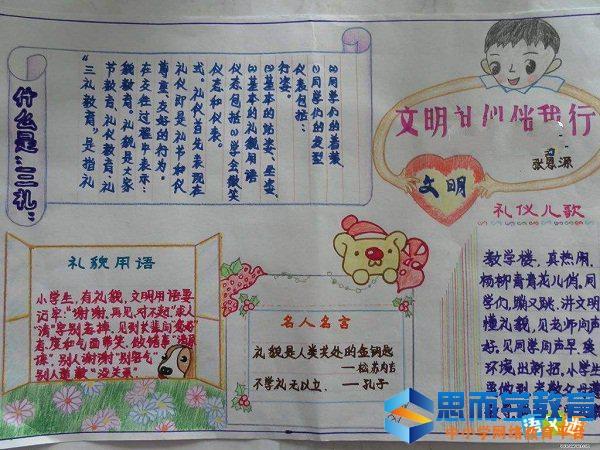 什么是“三礼”
“三礼教育”是指礼
节教育、礼仪教育、礼
貌教育。礼貌是大家
在交往过程中表示
尊重友好的行为。
礼仪即是礼节和仪
式。礼仪首先表现在
仪表和仪态。
仪态包括:(1)学会微笑
(2)基本的礼貌用语
(3)基本的站姿、坐姿、
行姿。
仪表包括:
(1)同学们的发型
(2)同学们的着装
文明礼仪伴我行
张恩源
文明
礼仪儿歌
教学楼,真热闹,
杨柳青青花儿俏。同
学们,蹦又跳,讲文明
懂礼貌,见老师问声
好。见同学问声早,
环境出新招。小学生
礼貌用语
小学生,有礼貌,文明用语要
记牢。“谢谢、再见、对不起。”求人
“请”字别忘掉,见到长辈问
面带笑,做错事
别人“谢谢”“别客气”
别人道歉“没关系”
名人名言
礼貌是人类共处的金钥匙
——松苏内吉
不学礼无以立。——孔子
思而学教育
中小学网络教育平台